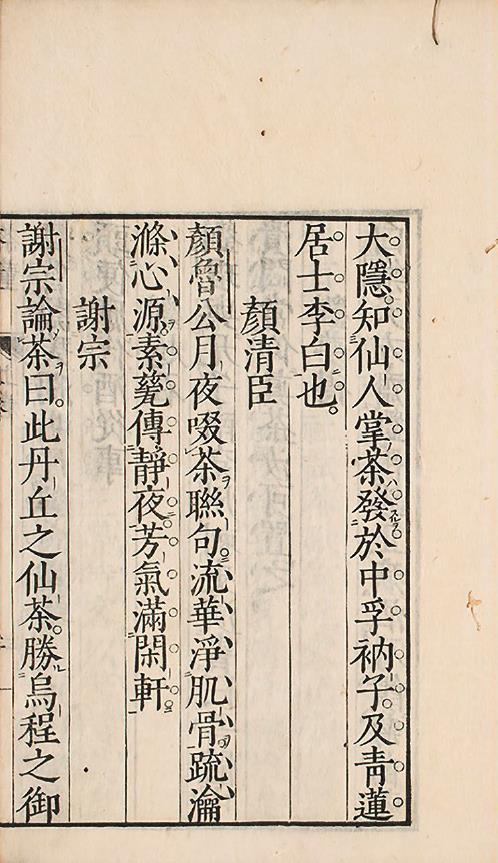 大隱知仙人掌茶發於中孚衲子及青蓮
居士李白也。
顏清臣
顏魯公月夜啜茶聯句。流華淨肌骨。疏瀹
滌心源。素甆傳靜夜。芳氣滿閑軒
謝宗
謝宗論茶曰。此丹丘之仙茶。勝烏程之御